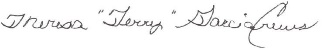 Theresa "Terry" Garcia Crews